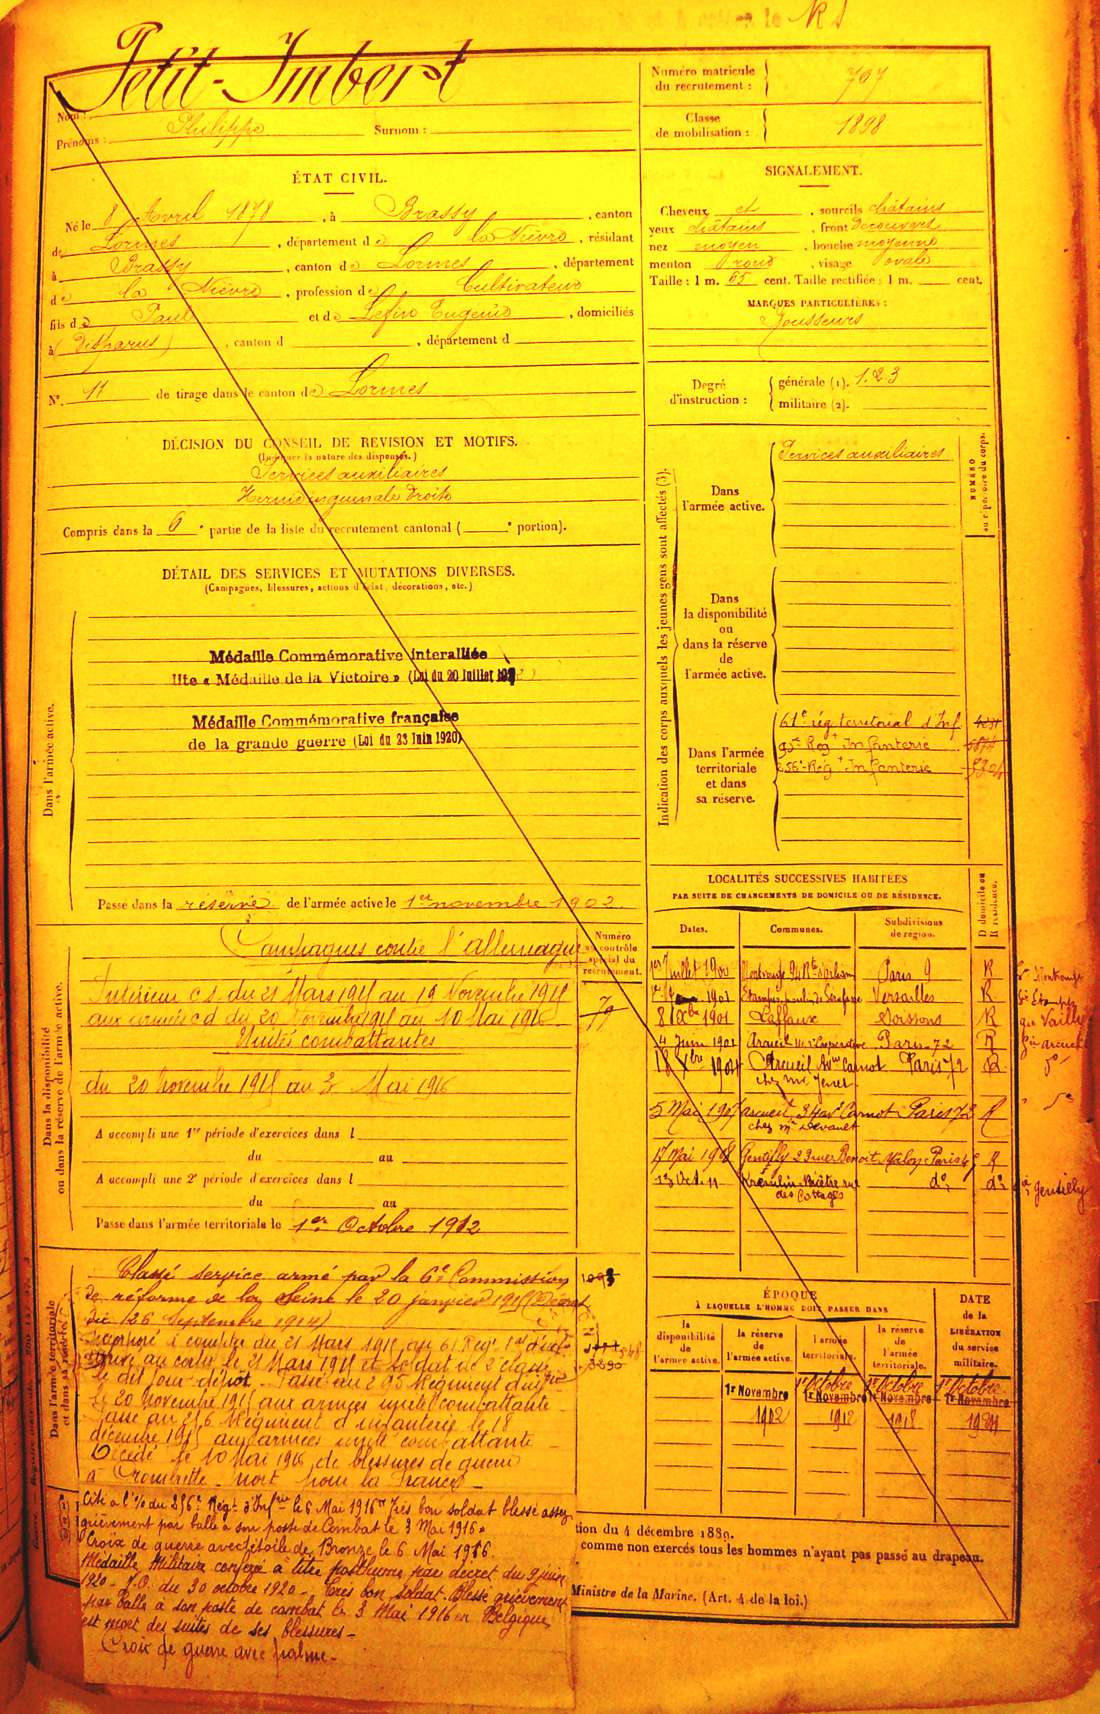 Petit-Imbert
Nom :
Prénoms : Philippe Surnom :
Numéro matricule du recrutement : 797
Classe de mobilisation : 1898
ÉTAT CIVIL.
Né le 8 Avril 1878, à Brassy, canton
de Lormes, département de la Nièvre, résidant
à Brassy, canton de Lormes, département
de la Nièvre, profession de Cultivateur
fils de Paul et de Eugénie, domiciliés
à (Disparus), canton d , département d
N° 11 de tirage dans le canton de Lormes
SIGNALEMENT.
Cheveux et , sourcils châtains
yeux châtains, front Découvert
nez moyen, bouche moyenne
menton rond, visage ovale
Taille : 1 m. 65 cent. Taille rectifiée : 1 m. cent.
MARQUES PARTICULIÈRES :
Rousseurs
Degré d'instruction :
générale (1). 1.2.3
militaire (2).
DÉCISION DU CONSEIL DE REVISION ET MOTIFS.
(Indiquer la nature des dispenses.)
Services auxiliaires
Hernie inguinale Droite
Compris dans la 6e partie de la liste du recrutement cantonal ( e portion).
DÉTAIL DES SERVICES ET MUTATIONS DIVERSES.
(Campagnes, blessures, actions d'éclat, décorations, etc.)
Dans l'armée active.
Médaille Commémorative interalliée
dite « Médaille de la Victoire » (Loi du 20 Juillet
Médaille Commémorative française
de la grande guerre (Loi du 23 Juin 1920)
Passé dans la réserve de l'armée active le 1er novembre 1902.
Indication des corps auxquels les jeunes gens sont affectés (3).
NUMÉRO au répertoire du corps.
Dans l'armée active.
Services auxiliaires
Dans la disponibilité ou dans la réserve de l'armée active.
Dans l'armée territoriale et dans sa réserve.
61e rég territorial d'Inf
95e Regt Infanterie
256e Regt Infanterie
Dans la disponibilité ou dans la réserve de l'armée active.
Campagnes contre l'allemagne
Numéro au contrôle spécial du recrutement.
79
Intérieur c.s. du 21 Mars 1915 au 19 Novembre 1915
aux armées cd du 20 Novembre 1915 au 10 Mai 1916
Unités combattantes
du 20 Novembre 1915 au 3 Mai 1916
A accompli une 1re période d'exercices dans l
du au
A accompli une 2e période d'exercices dans l
du au
Passé dans l'armée territoriale le 1er Octobre 1912
LOCALITÉS SUCCESSIVES HABITÉES
PAR SUITE DE CHANGEMENTS DE DOMICILE OU DE RÉSIDENCE.
Dates. Communes. Subdivisions de région. D domicile ou R résidence.
1er Juillet 1900 Montrouge Paris R
1901 Etampes Versailles R
8 Xbre 1901 Laffaux Soissons R
4 Juin 1902 Arcueil Paris-72 R
18 Xbre 1904 Arcueil Carnot Paris 72 R
chez Mr
5 Mai 1907 arcueil Carnot Paris 72 R
chez Mr
17 Mai 1908 Gentilly 23 rue Benoit Malon Paris R
13 Oct. 11 Kremlin-Bicêtre rue do do
des Cottages
Dans l'armée territoriale et dans sa réserve
Classé service armé par la 6e Commission
de réforme de la Seine le 20 janvier 1915 (Décret
du 26 Septembre 1914)
Incorporé à compter du 21 Mars 1915 au 61 Reg.
Arrivé au corps le 21 Mars 1915 et soldat de 2e classe
le dit jour dépôt. Passé au 295 Régiment d'infrie
le 20 Novembre 1915 aux armées unité combattante.
Passé au 256 Régiment d'infanterie le 18
décembre 1915 aux armées unité combattante
Décédé le 10 Mai 1916 de blessures de guerre
à Crombette. Mort pour la France.
Cité à l'O/ du 256e Regt d'Infrie le 6 Mai 1916 "Très bon soldat blessé assez
grièvement par balle à son poste de Combat le 3 Mai 1916"
Croix de guerre avec étoile de Bronze le 6 Mai 1916.
Médaille Militaire conféré à titre posthume par décret du 9 juin
1920. J.O. du 30 octobre 1920. Très bon soldat. Blessé grièvement
par balle à son poste de combat le 3 Mai 1916 en Belgique,
est mort des suites de ses blessures.
Croix de guerre avec palme.
ÉPOQUE
À LAQUELLE L'HOMME DOIT PASSER DANS
la disponibilité de l'armée active.
la réserve de l'armée active.
l'armée territoriale.
la réserve de l'armée territoriale.
DATE de la LIBÉRATION du service militaire.
1er Novembre 1902
1er Octobre 1er Novembre 1912
1er Octobre 1er Novembre 1918
1er Octobre 1er Novembre 1924
tion du 4 décembre 1889.
comme non exercés tous les hommes n'ayant pas passé au drapeau.
Ministre de la Marine. (Art. 4 de la loi.)